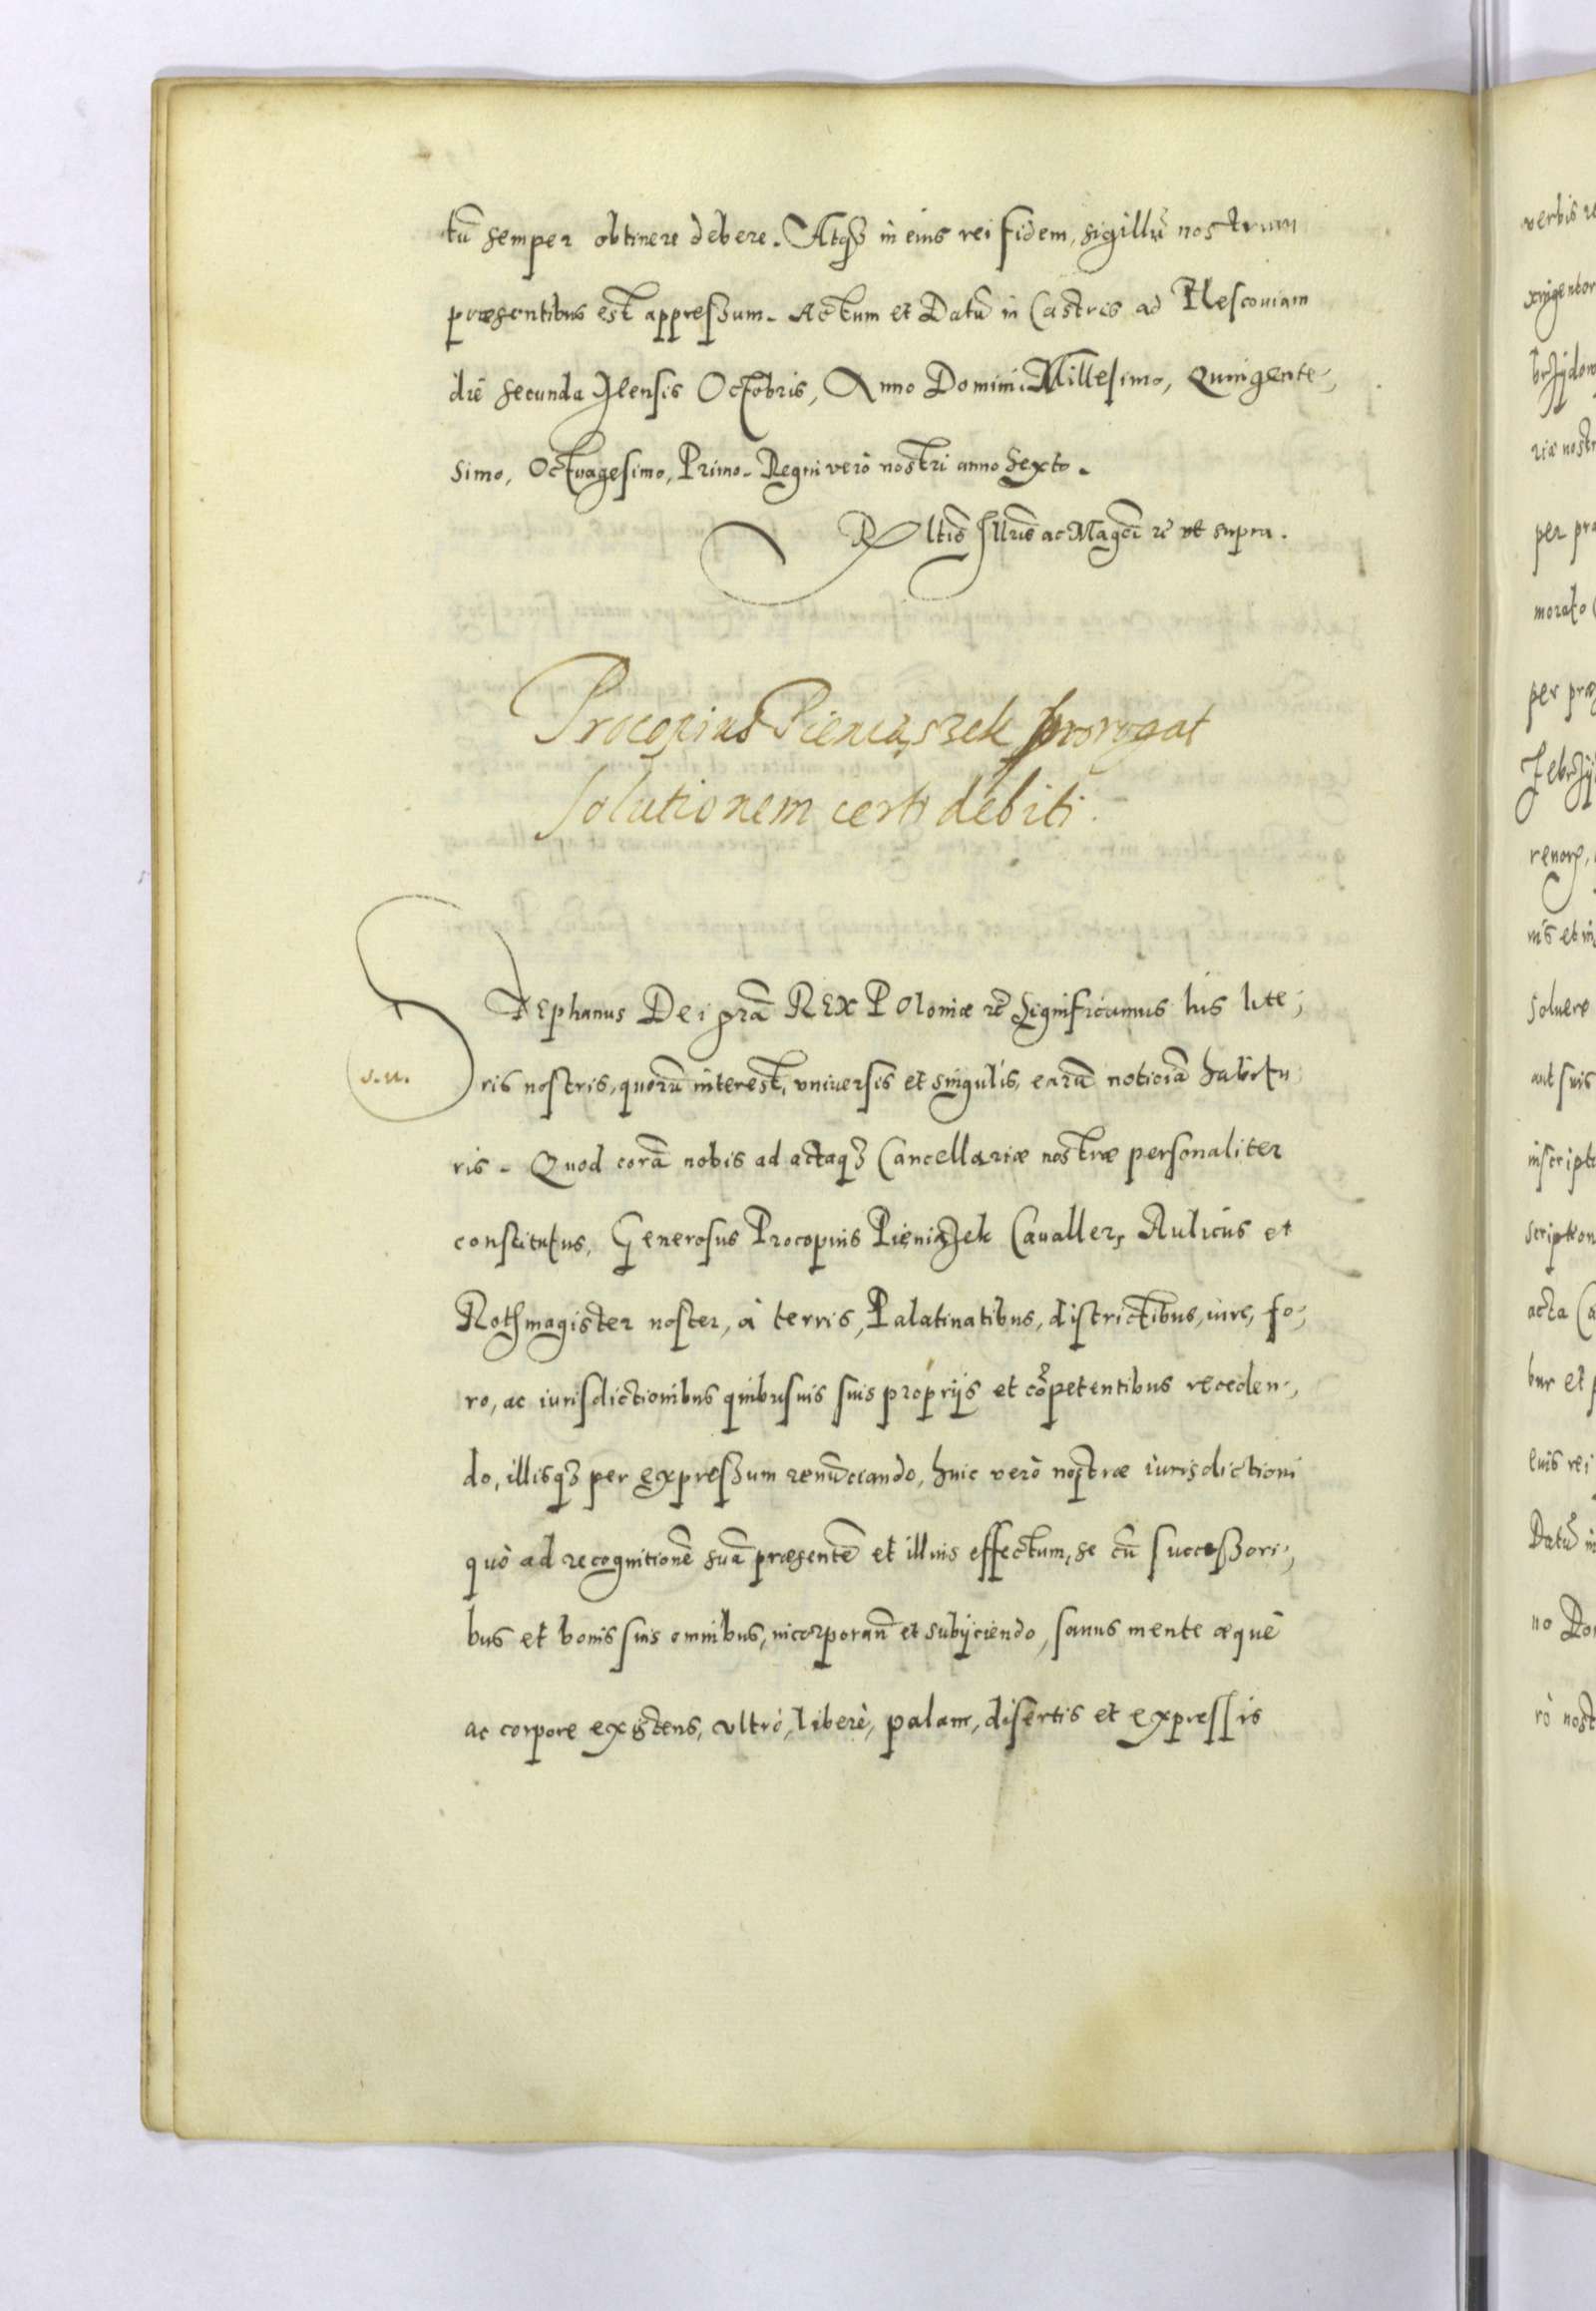 tũ semper obtinere debere. Atqȝ in eius rei fidem, sigillũ nostrum
præsentibus est appressum. Actum et Datũ in Castris ad Plescouiam
die secunda Mensis Octobris, Anno Domini Millesimo, Quingente-
simo, Octuagesimo, Primo. Regni verò nostri anno Sexto.
Rltio Illris ac Magci rc vt supra.
Procopius Pieniąszek prorogat
Solutionem certi debiti.
Stephanus Dei gra REX Poloniæ rc Significamus his lite-
s. u.
ris nostris, quorũ interest, vniuersis et singulis, earũ noticiã habitu
ris. Quod corã nobis ad actaqȝ Cancellariæ nostræ personaliter
constitutus, Generosus Procopius Pieniążek Cavaller, Aulicus et
Rothmagister noster, à terris, Palatinatibus, districtibus, iure, fo-
ro, ac iurisdictionibus quibusuis suis proprijs et cõpetentibus receden-
do, illisqȝ per expressum renũciando, huic verò nostræ iurisdictioni
quò ad recognitionẽ suã præsentẽ et illius effectum, se cũ successori-
bus et bonis suis omnibus, incorporanƌ et subijciendo, sanus mente æque
ac corpore existens, vltrò, liberè, palam, disertis et expressis
verbis re
per pra
morato
per præ
renorȝ,
nis et in
soluere
aut suis
inscripti
scription
acta Ca
bur et p
euis rei
Datũ in
no Do
rò nost